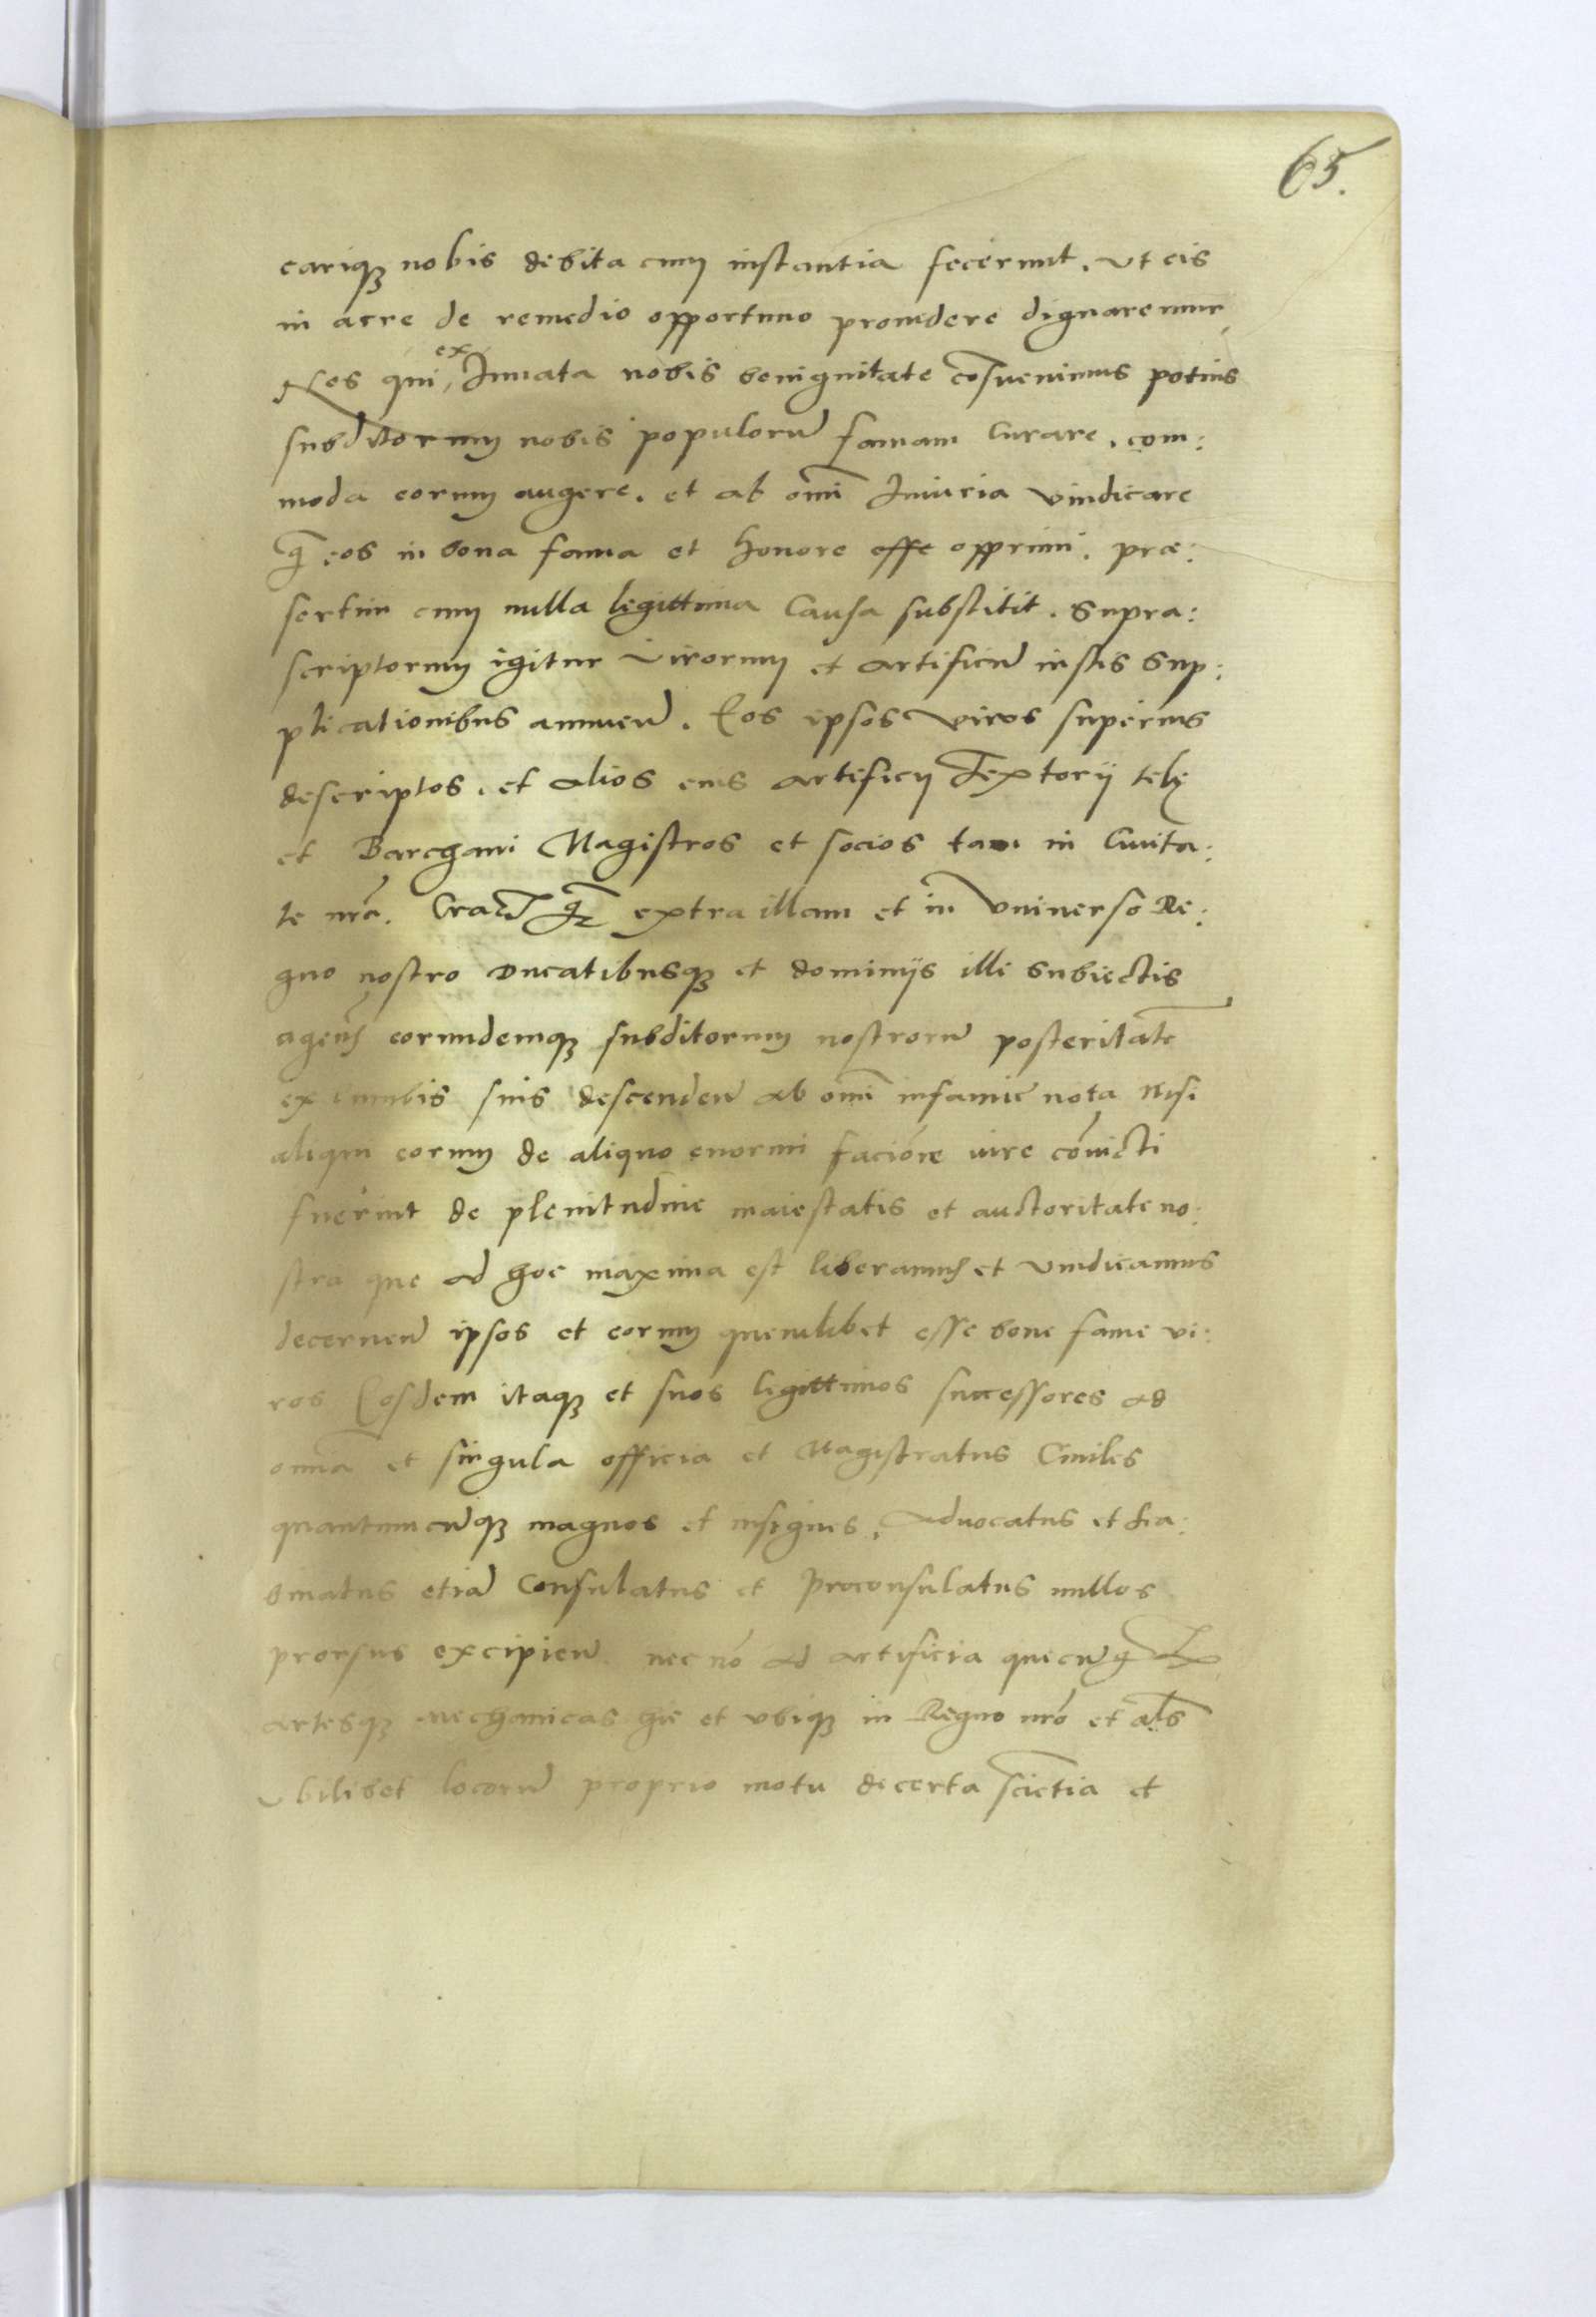 65.
cariq₃ nobis debita cum instantia fecerunt. Ut eis
in acre de remedio opportuno prouidere dignaremur
Nos qui ex Innata nobis benignitate cōsueuimus potius
subditorum nobis populorū famam Curare. com:
moda eorum augere. et ab om̄i Iniuria vindicare
q̄ eos in bona fama et honore esse opprimi. præ:
sertim cum nulla legittima Causa substitit. Supra:
scriptorum igitur Virorum et artificū iustis Sup:
plicationibus annuen̄. Eos ipsos viros superius
descriptos. et alios eius artificij Textorij telę
et Barchani Magistros et socios tam in Ciuita:
te nrā. Crac̄ q̄ extra illam et in Vniuerso Re:
gno nostro Ducatibusq₃ et dominijs illi Subiectis
agen̄ eorundemq₃ subditorum nostrorū posteritatē
ex lumbis suis descenden̄ ab om̄i infamie nota Nisi
aliqui eorum de aliquo enormi facinore iure cōuicti
fuerint de plenitudine maiestatis et auctoritate no:
stra que ad hoc maxima est liberamus et Vindicamus
decernen̄ ipsos et eorum quemlibet esse bone fame vi:
ros Eosdem itaq₃ et suos legittimos successores ad
om̄ia et singula officia et Magistratus Ciuiles
quantumcūq₃ magnos et insignes. Aduocatus et sca:
binatus etiā Consulatus et Proconsulatus nullos
prorsus excipien̄ nec nō ad artificia quecūq₃
artesq₃ Mechanicas hic et vbiq₃ in Regno nrō et al̄s
Vbilibet locorū proprio motu de certa sciētia et